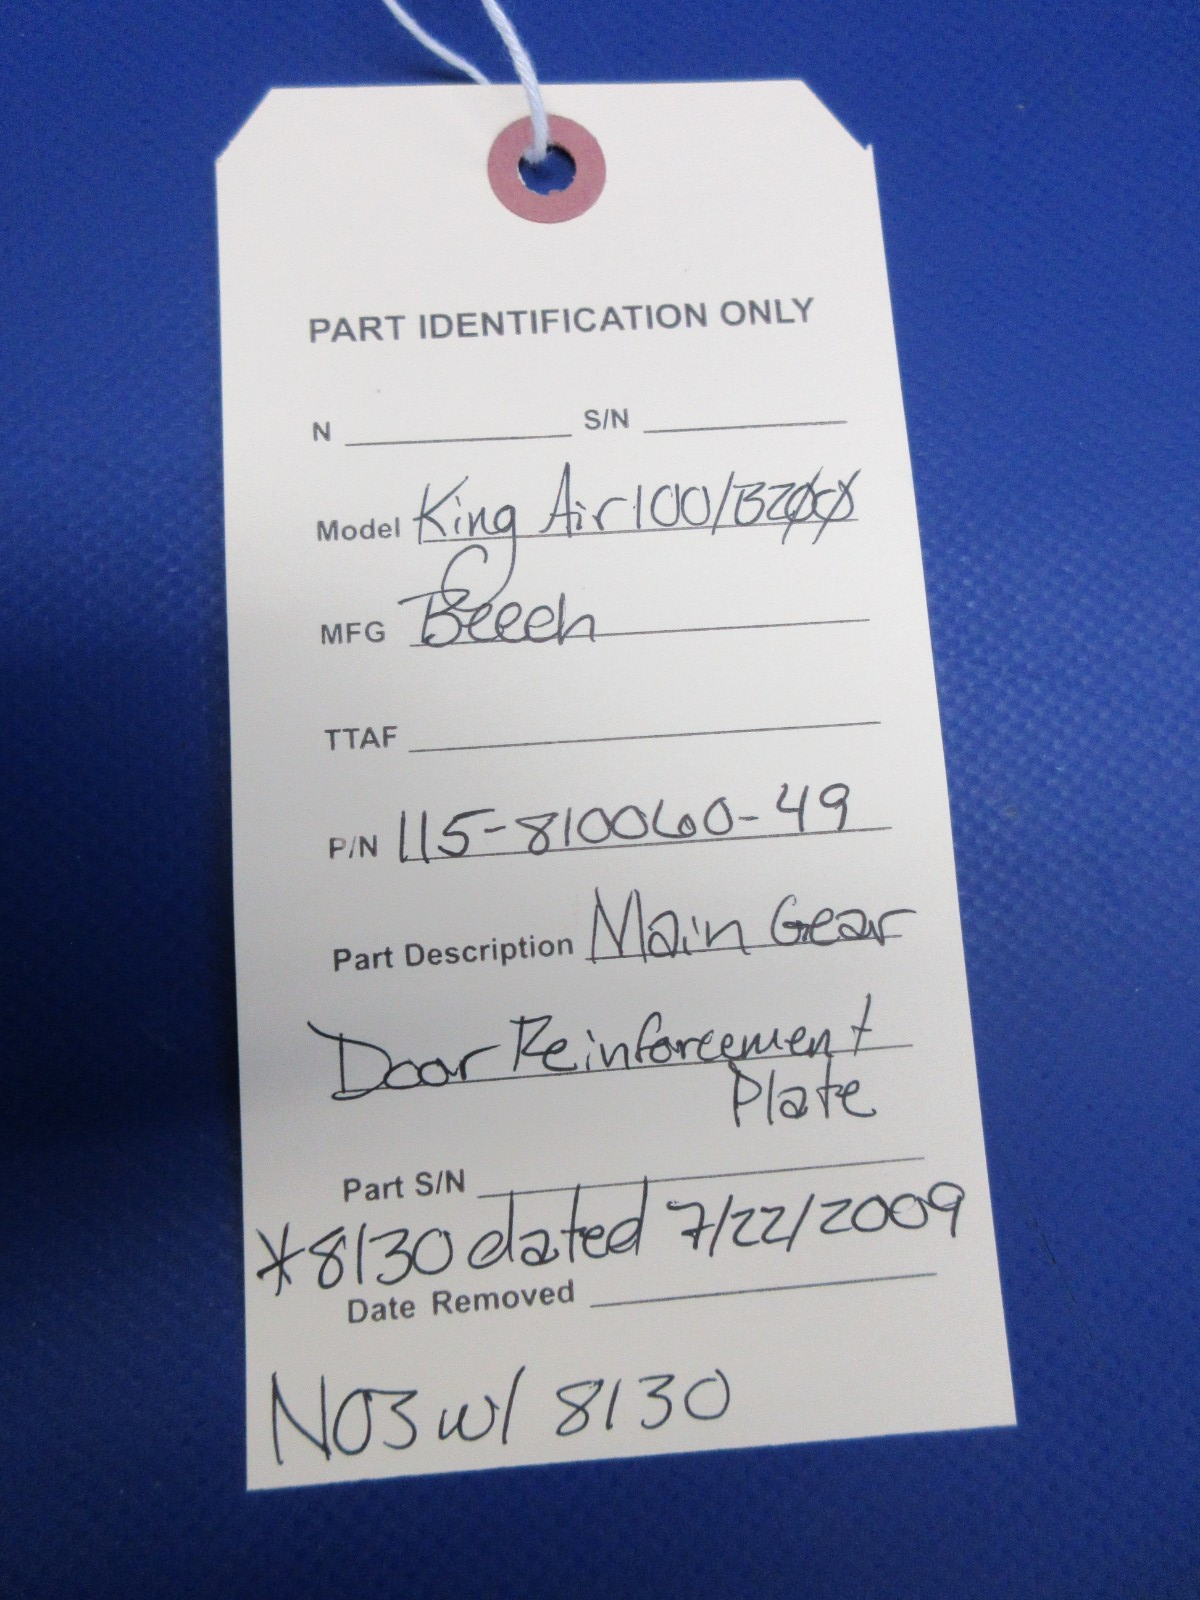 PART IDENTIFICATION ONLY
N S/N
Model King Air 100/B200
MFG Beech
TTAF
P/N 115-810060-49
Part Description Main Gear
Door Reinforcement
Plate
Part S/N
*8130 dated 7/22/2009
Date Removed
N03 w/ 8130